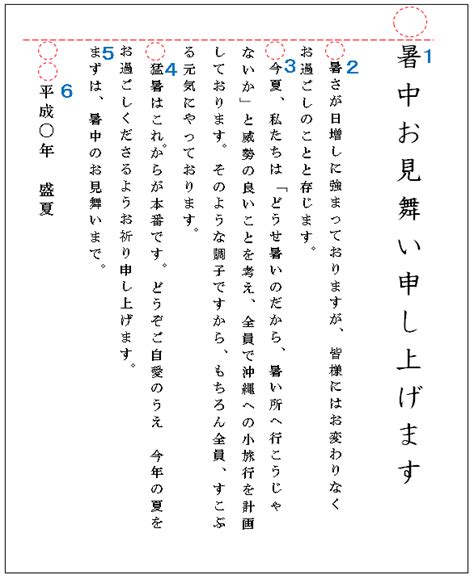 1
暑中お見舞い申し上げます
2
暑さが日増しに強まっておりますが、皆様にはお変わりなく
お過ごしのことと存じます。
3
今夏、私たちは「どうせ暑いのだから、暑い所へ行こうじゃ
ないか」と威勢の良いことを考え、全員で沖縄への小旅行を計画
しております。そのような調子ですから、もちろん全員、すこぶ
る元気にやっております。
4
猛暑はこれからが本番です。どうぞご自愛のうえ　今年の夏を
お過ごしくださるようお祈り申し上げます。
5
まずは、暑中のお見舞いまで。
6
平成〇年　盛夏